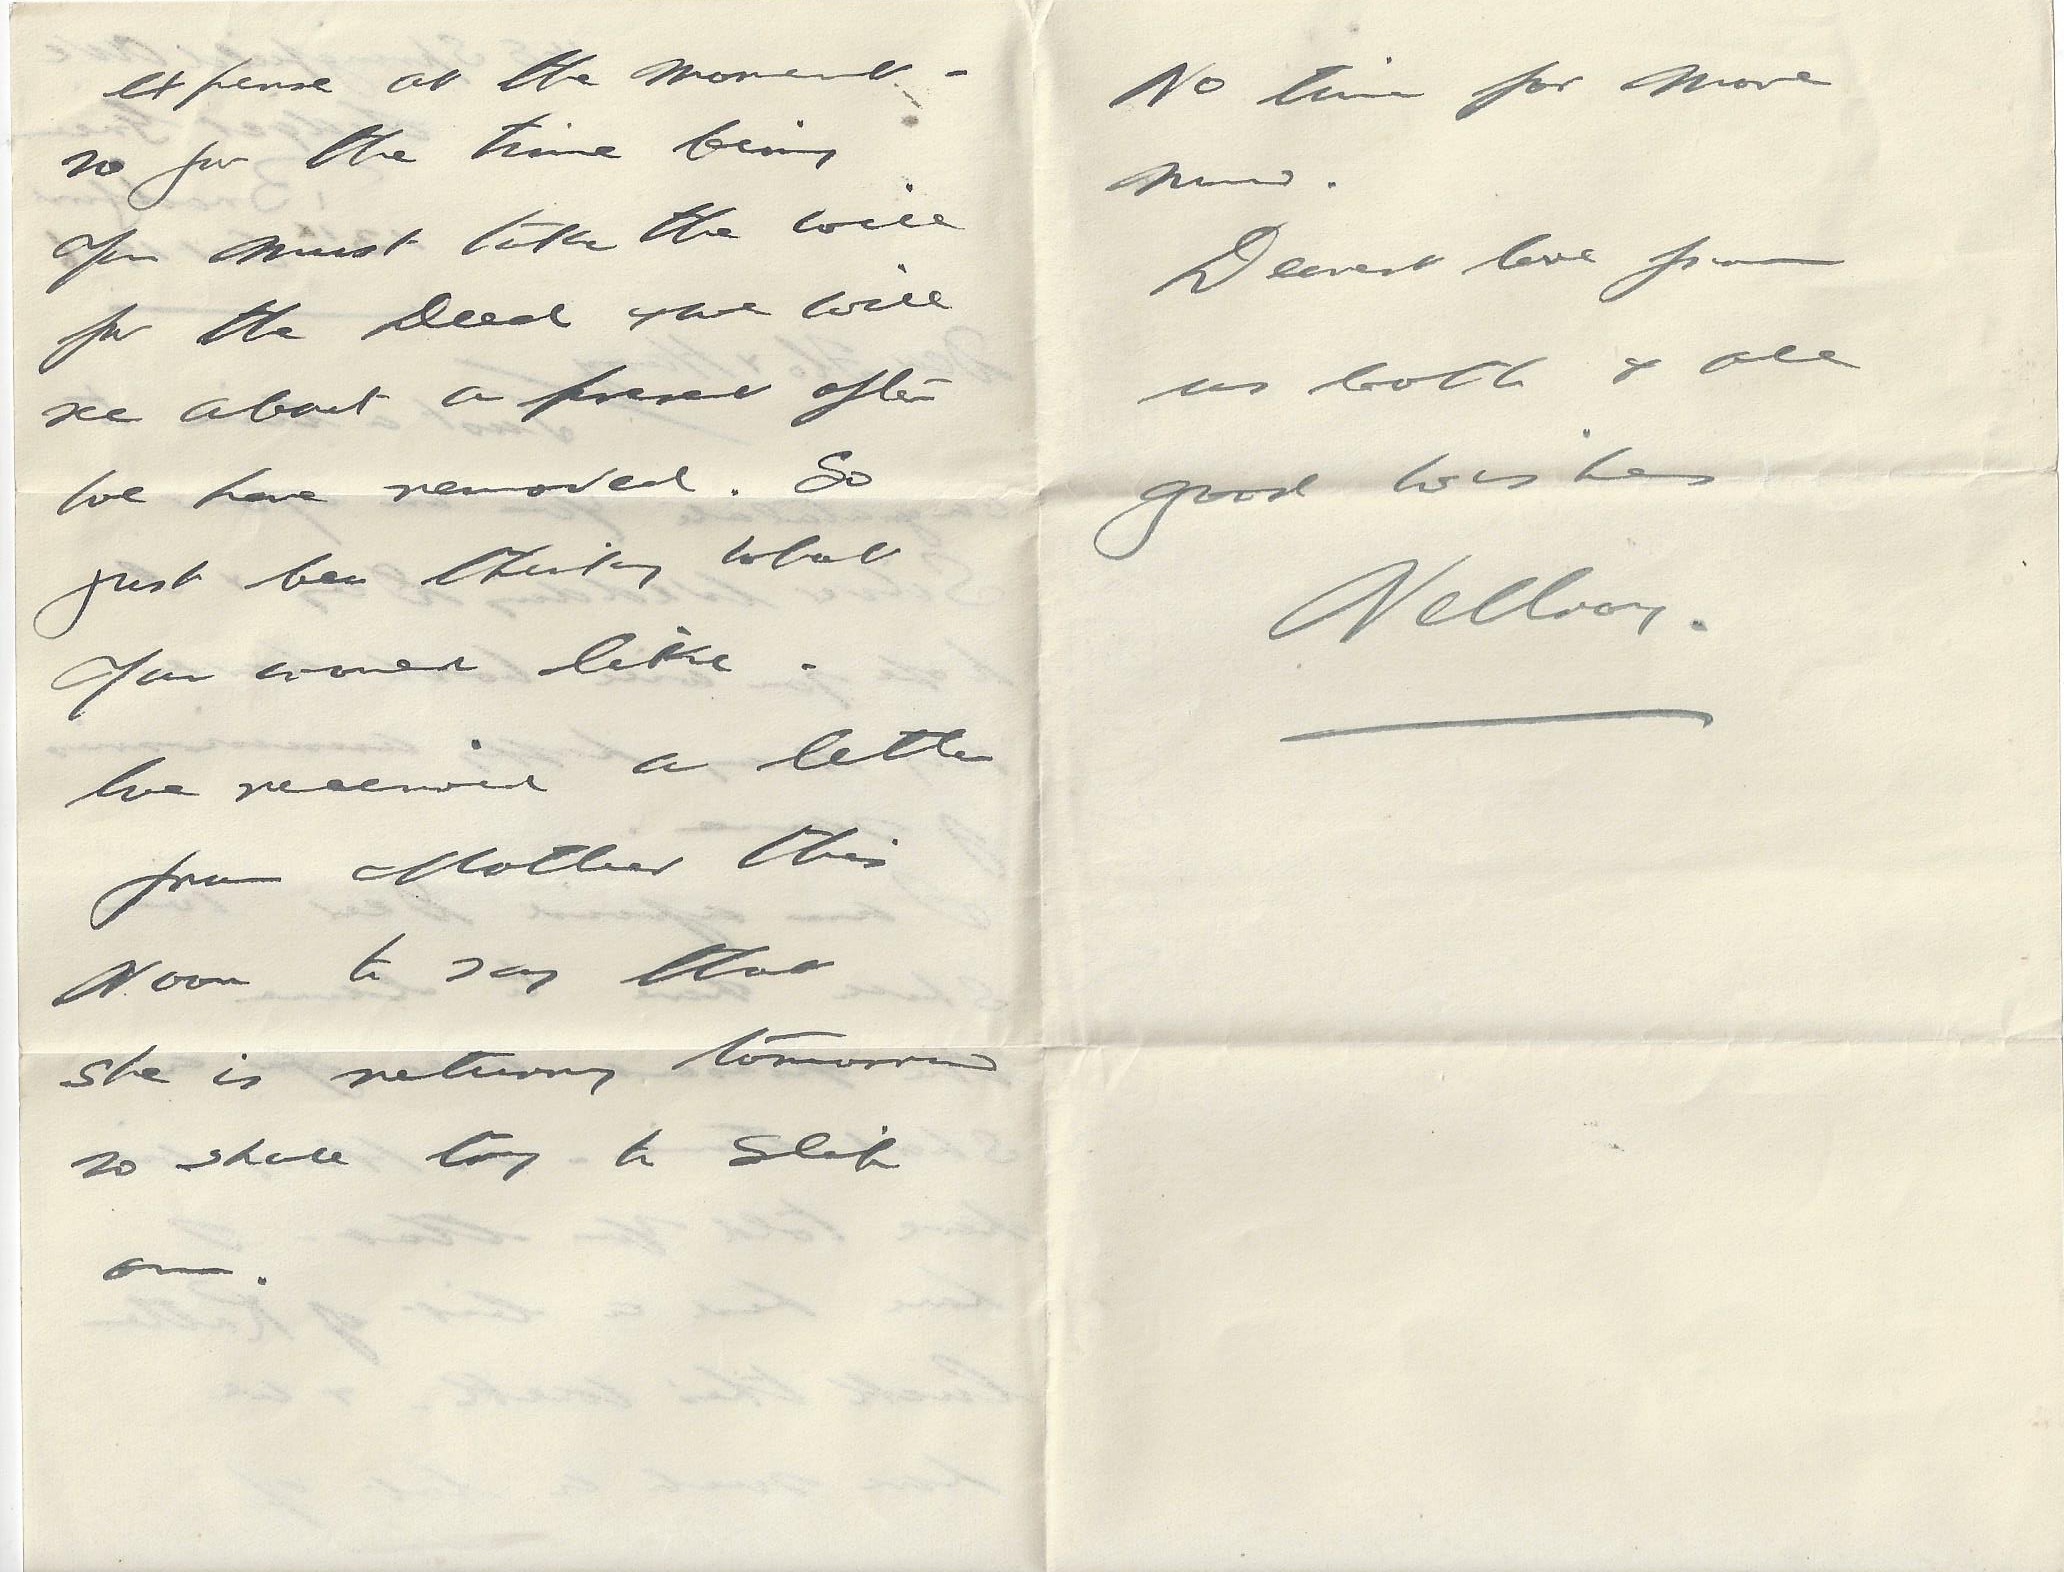 expense at the moment -
so for the time being
you must take the will
for the Deed & we will
see about a present after
we have removed. So
just be thinking what
you would like -
We received a letter
from Mother this
Noon to say that
she is returning tomorrow
so shall try to slip
over.
No time for more
now.
Dearest love from
us both & all
good wishes